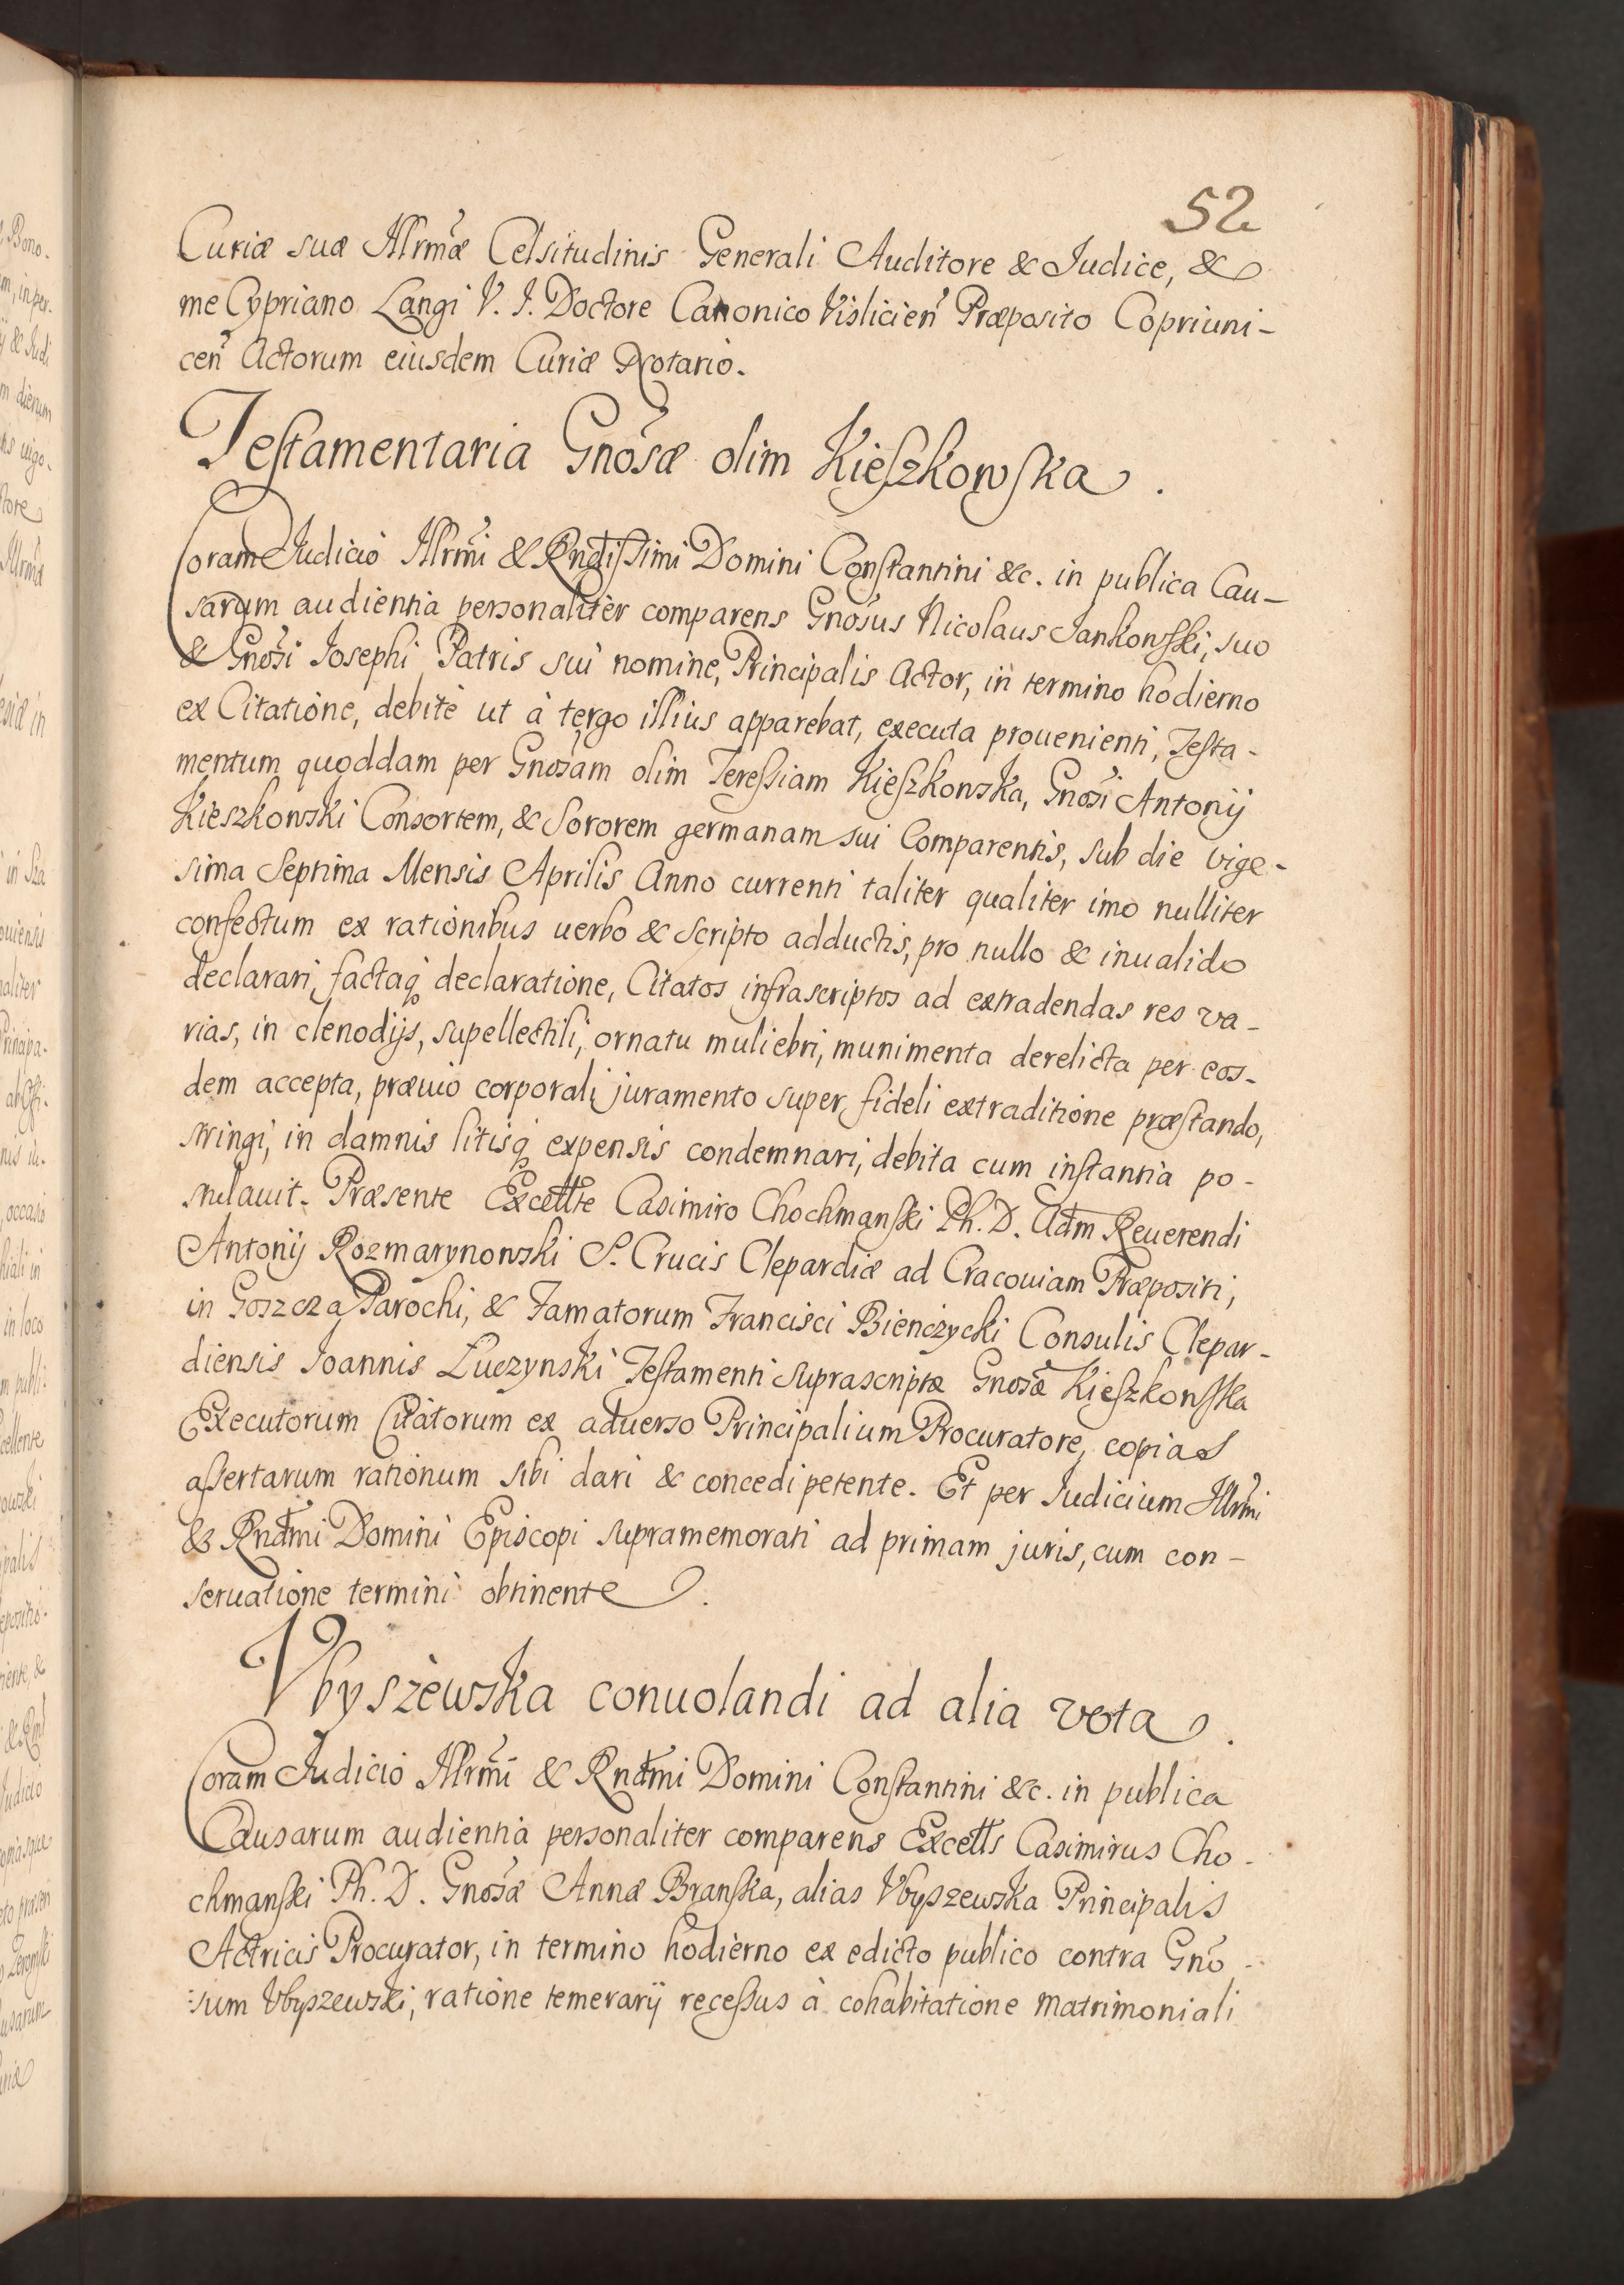 52
Curiæ suæ Illrmæ Celsitudinis Generali Auditore & Judice, &
me Cypriano Langi V. J. Doctore Canonico Visliciẽn Præposito Copriuni-
cẽn Actorum eiusdem Curiæ Notario.
Testamentaria Gnosæ olim Kieszkowska.
Coram Judicio Illrmi & Rndissimi Domini Constantini &c. in publica Cau-
sarum audientia personalitèr comparens Gnosus Nicolaus Jankowski, suo
& Gnosi Josephi Patris sui nomine, Principalis Actor, in termino hodierno
ex Citatione, debitè ut à tergo illius apparebat, executa prouenienti, Testa-
mentum quoddam per Gnosam olim Teressiam Kieszkowska, Gnosi Antonij
Kieszkowski Consortem, & Sororem germanam sui Comparentis, sub die vige-
sima Septima Mensis Aprilis Anno currenti taliter qualiter imo nulliter
confectum ex rationibus uerbo & scripto adductis, pro nullo & inualido
declarari, factaq declaratione, Citatos infrascriptos ad extradendas res va-
rias, in clenodijs, supellectili, ornatu muliebri, munimenta derelicta per eos-
dem accepta, præuio corporali juramento super fideli extraditione præstando,
stringi, in damnis litisq expensis condemnari, debita cum instantia po-
stulauit. Præsente Excellte Casimiro Chochmanski Ph. D. Adm Reuerendi
Antonij Rozmarynowski S. Crucis Clepardiæ ad Cracouiam Præpositi,
in Goszcza Parochi, & Famatorum Francisci Bieńczycki Consulis Clepar-
diensis Joannis Łuczynski Testamenti suprascriptæ Gnosæ Kieszkowska
Executorum Citatorum ex aduerso Principalium Procuratore, copias
assertarum rationum sibi dari & concedi petente. Et per Judicium Illrmi
& Rndmi Domini Episcopi supramemorati ad primam juris, cum con-
seruatione termini obtinente.
Vbyszèwska conuolandi ad alia vota.
Coram Judicio Illrmi & Rndmi Domini Constantini &c. in publica
Causarum audientia personaliter comparens Excells Casimirus Cho-
chmanski Ph. D. Gnosæ Annæ Branska, alias Vbyszewska Principalis
Actricis Procurator, in termino hodierno ex edicto publico contra Gno-
sum Vbyszewski, ratione temerarij recessus à cohabitatione matrimoniali